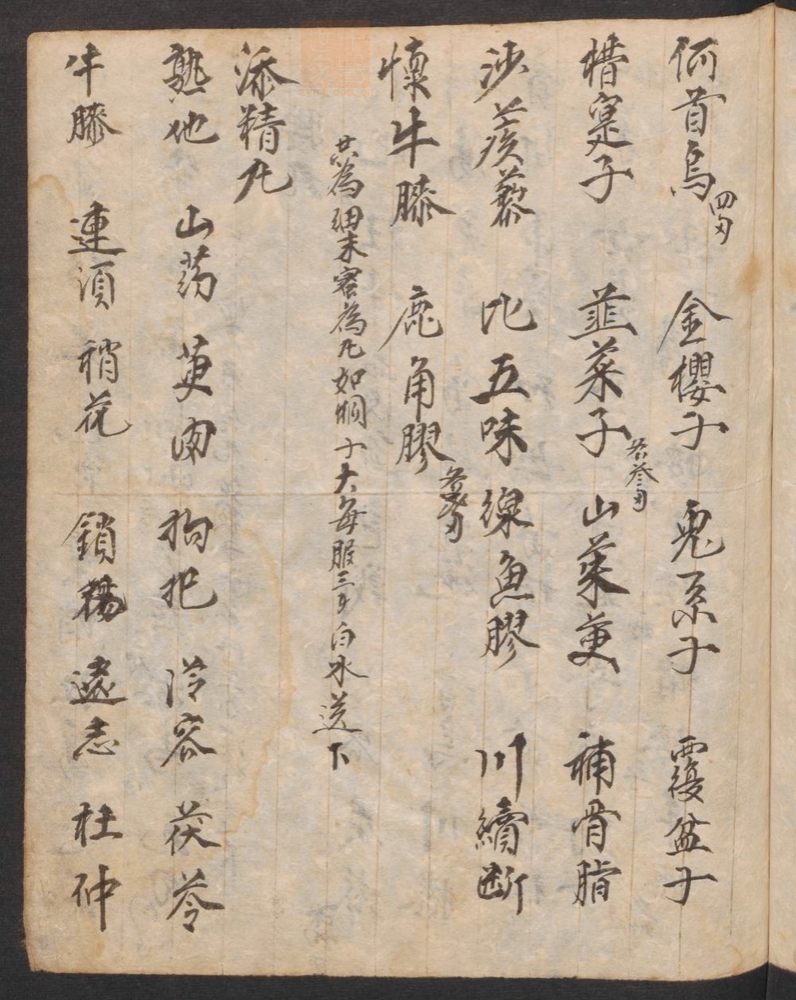 何首烏四刄 金櫻子 兎系子 覆盆子
楮寔子 韮菜子 各叁刄 山萊萸 補骨脂
沙蒺藜 北五味 線魚膠 川續斷
懐牛膝 鹿角膠
共為細末蜜為九如桐子大每服三子白水送下
添精九
熟地 山药 萸肉 拘杞 苓容 茯苓
牛膝 連須 稍花 鎖陽 遠志 杜仲